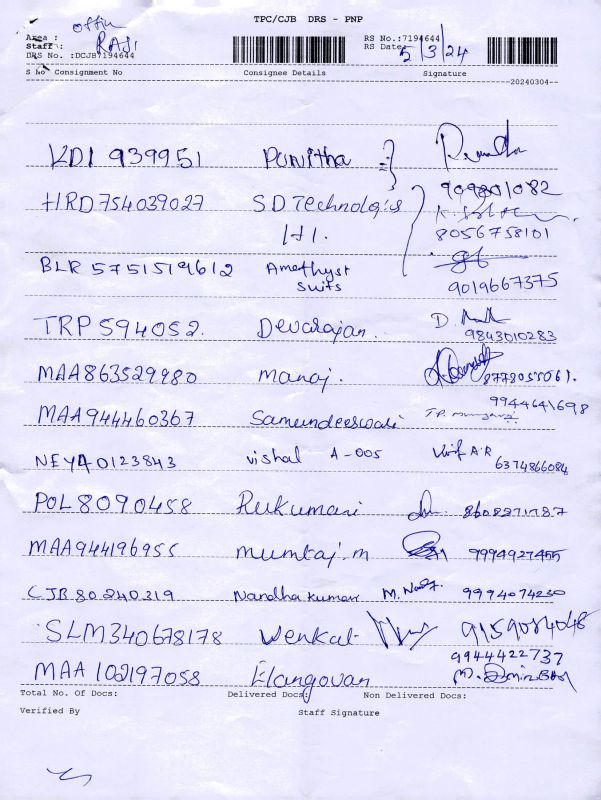 TPC/CJB DRS - PNP
office
Area :
Staff : RAJI
DRS No. :DCJB7194644
RS No.:7194644
RS Date: 5/3/24
S No Consignment No Consignee Details Signature
20240304--
KDI 939951 Punitha
HRD754039027 S.D.Technologis 909801082
8056758101
BLR 5751519612 Amethyst
suits 9019667375
TRP594052. Devarajan. D. 9843010283
MAA863529980 manoj. 8778055061.
MAA944460367 Samundeeswari 9944641698
NEY40123843 vishal A-005 A.R 6374866084
POL8090458 Rukumani 8608271787
MAA944196955 mumtaj.m 9994927455
CJB80240319 Nandhakumar M. 9994074230
SLM340678178 Venkat 9159084048
MAA 102197058 Elangovan 9944422737
Total No. Of Docs: Delivered Docs: Non Delivered Docs:
Verified By Staff Signature